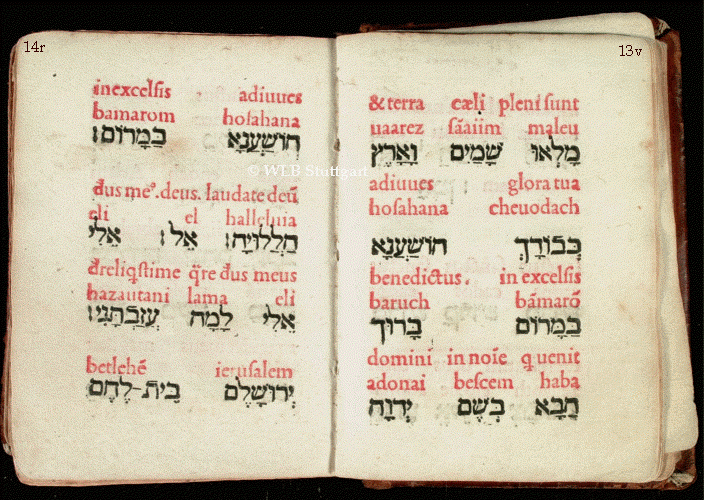 13v
&terra cæli pleni sunt
uaarez sãaiim maleu
מָלְאוּ שָׁמַיִם וָאָרֶץ
adiuues glora tua
hosahana cheuodach
כְּבוֹדָךְ הוֹשַׁעֲנָא
benedictus. in excelsis
baruch bãmarõ
בַּמָּרוֹם בָּרוּךְ
domini in noīe q uenit
adonai bescem haba
הַבָּא בְּשֵׁם יְהוָה
14r
in excelsis adiuues
bamarom hosahana
הוֹשַׁעֲנָא בַּמָּרוֹם:
d̄us me⁹. deus. laudate deū
eli el halleluia
הַלְלוּיָהּ: אֵל: אֵלִי
dreliq̄stime q̄re d̄us meus
hazautani lama eli
אֵלִי לָמָה עֲזַבְתָּנִי:
betlehē ierusalem
יְרוּשָׁלֵם בֵּית-לֶחֶם
© WLB Stuttgart